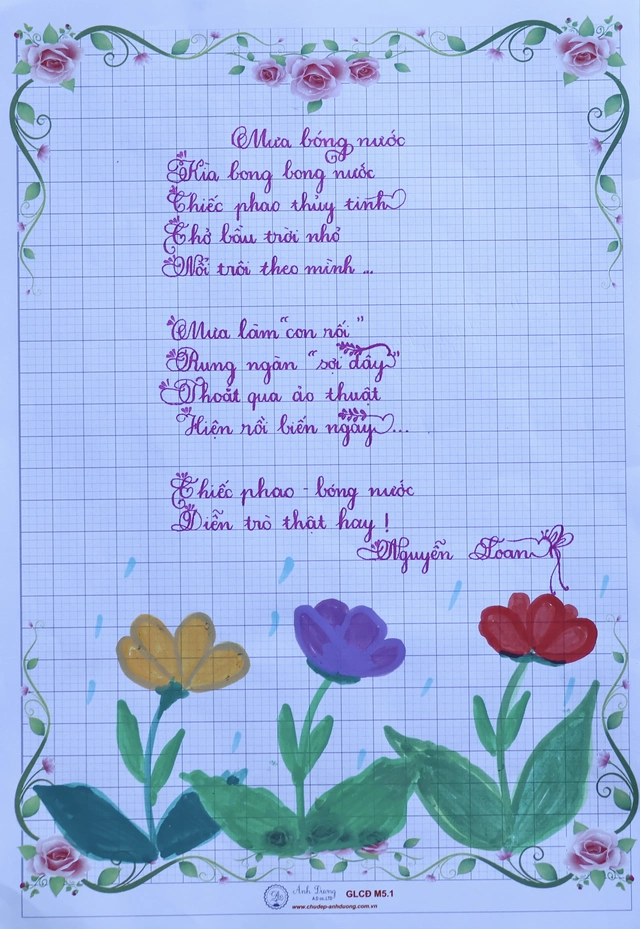 Mưa bóng nước
Kìa bong bong nước
Chiếc phao thủy tinh
Chở bầu trời nhỏ
Nổi trôi theo mình ...
Mưa làm "con rối"
Rung ngàn "sợi dây"
Thoắt qua ảo thuật
Hiện rồi biến ngay ...
Chiếc phao - bóng nước
Diễn trò thật hay !
Nguyễn Toan
Ánh Dương
A.D co.,LTD
GLCĐ M5.1
www.chudep-anhduong.com.vn